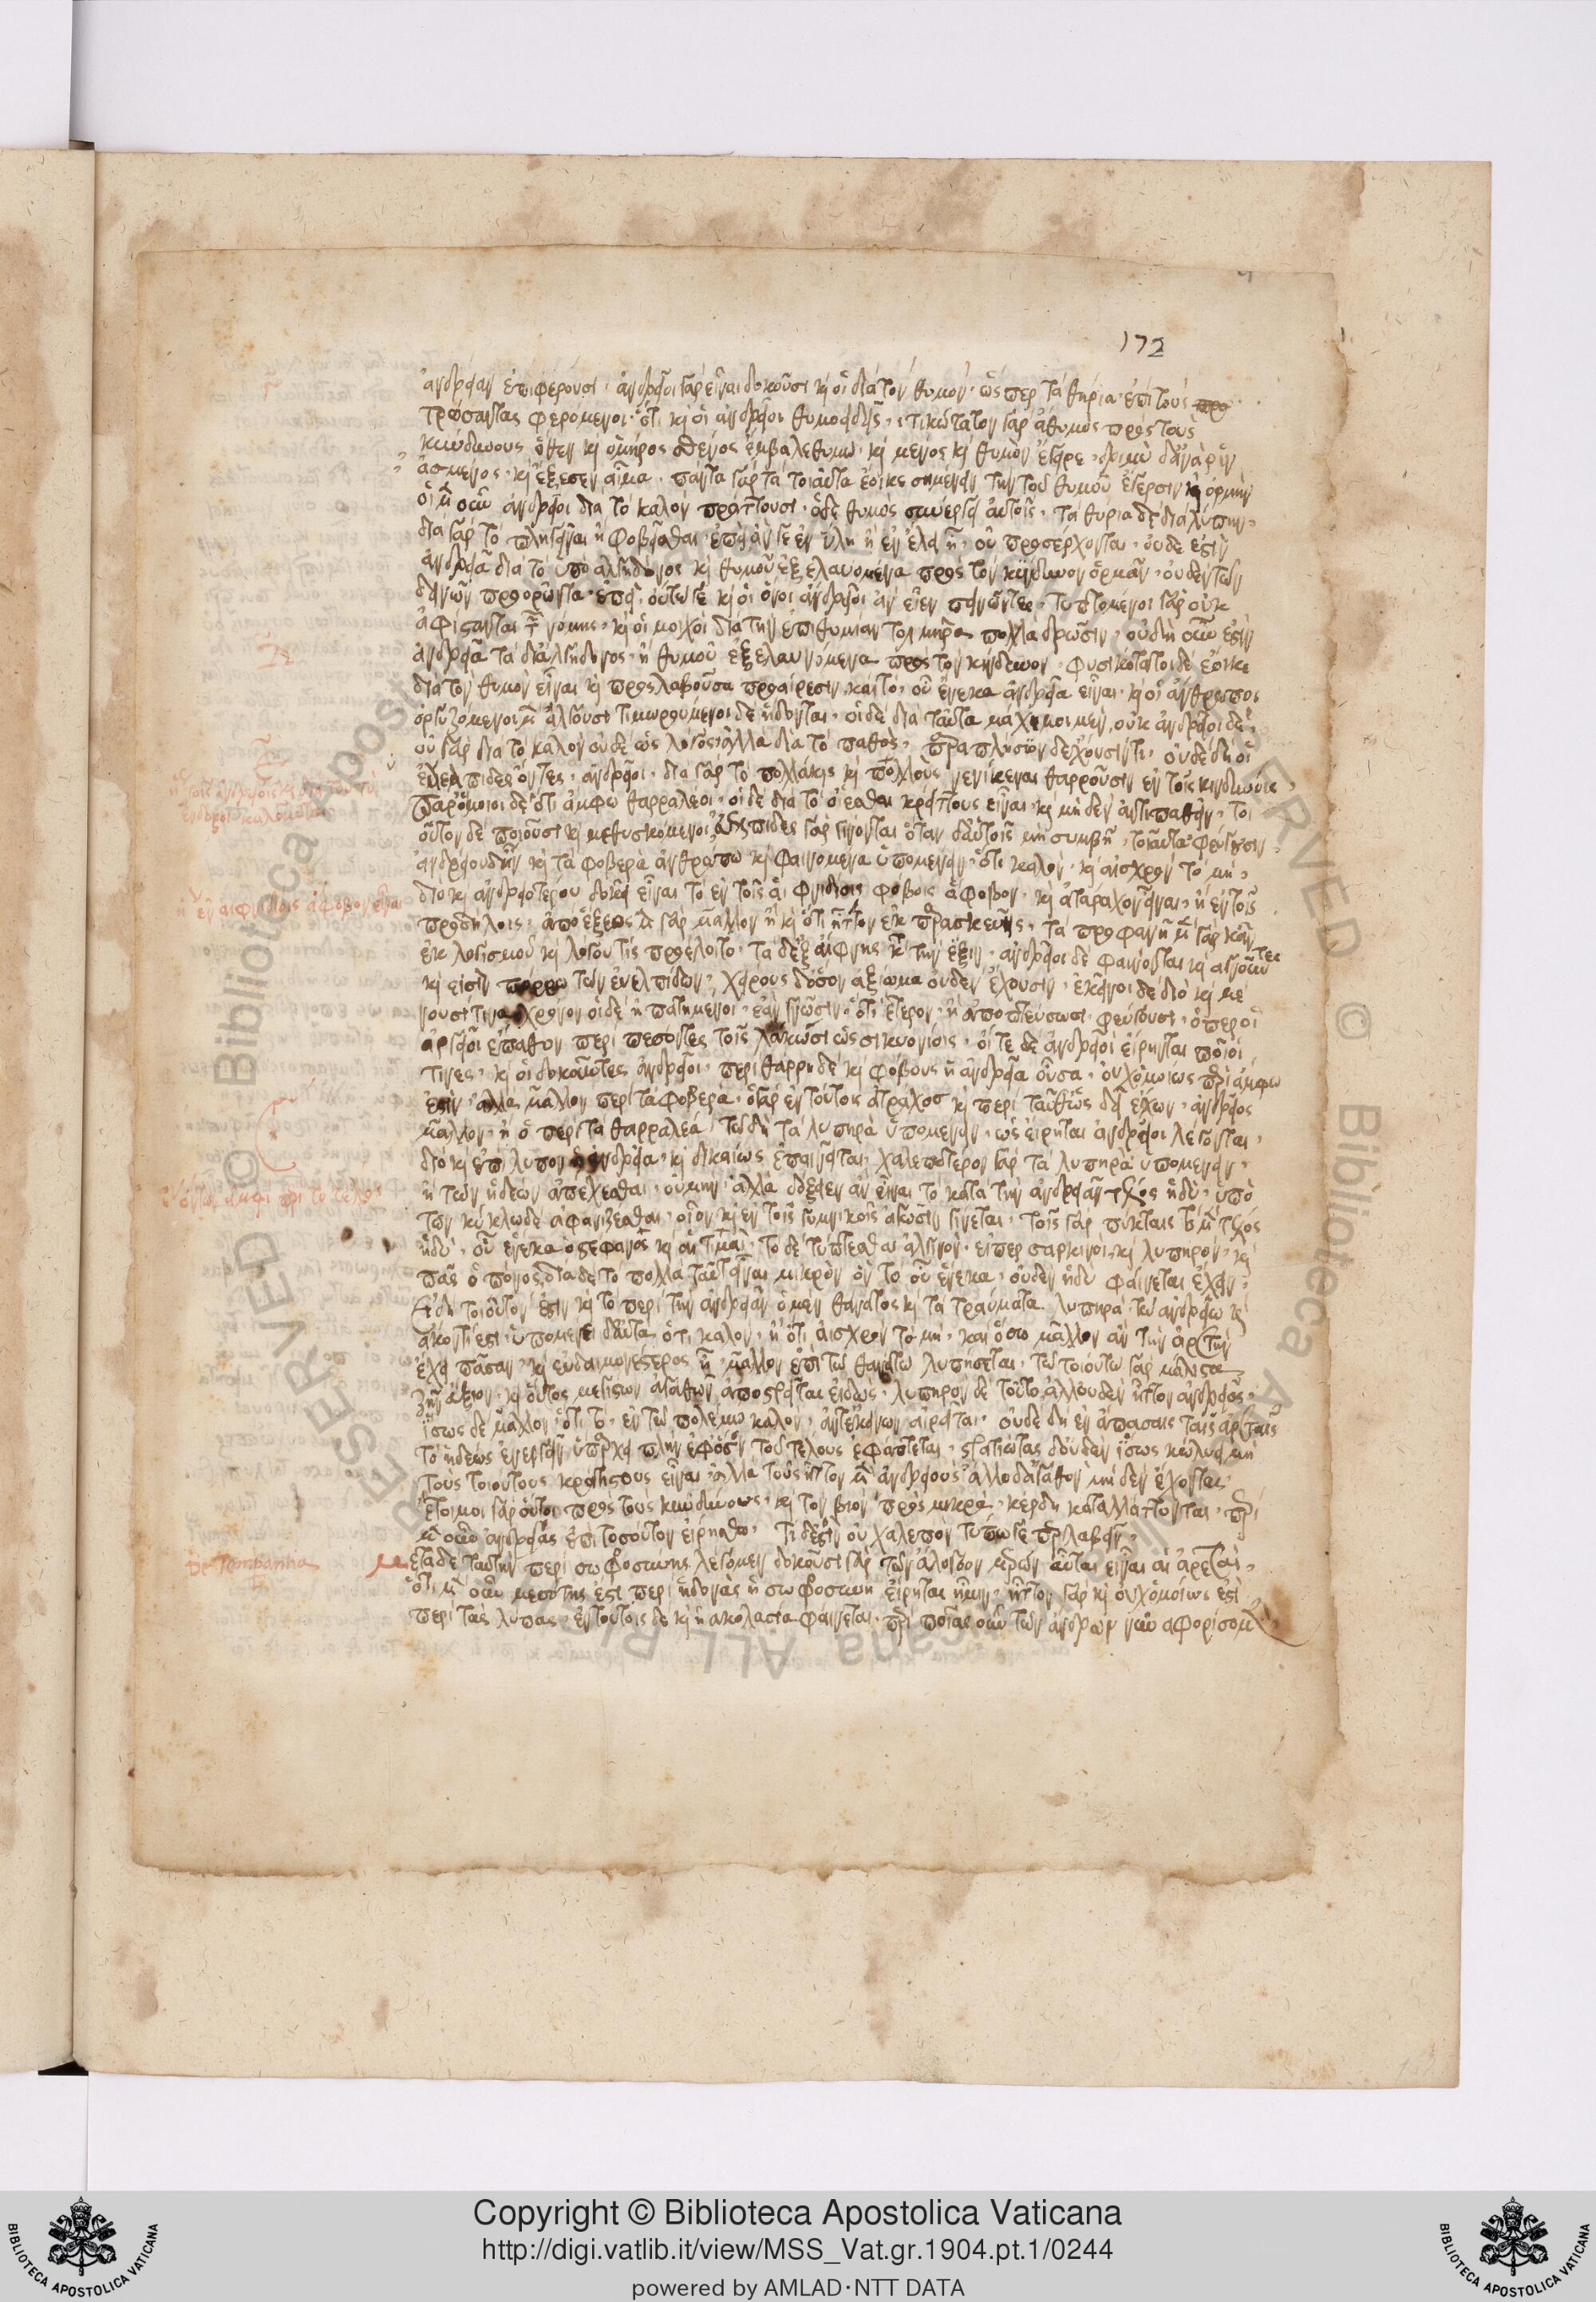 172
ἀνδρείαν ἐπιφέρουσι· ἀνδρεῖοι γὰρ εἶναι δοκοῦσι κ οἱ διὰ τὸν θυμὸν· ὥσπερ τὰ θηρία ἐπὶ τοὺς
τρώσαντας φερόμενοι· ὅτι κ οἱ ἀνδρεῖοι θυμοειδεῖς· ἰτικώτατον γὰρ ὁ θυμὸς πρὸς τοὺς
κινδύνους ὅθεν κ ὅμηρος σθένος ἔμβαλε θυμῷ· κ μένος κ θυμὸν ἔγειρε· δριμὺ δ'ἀνὰ ῥῖν
μένος· κ ἔζεσεν αἷμα· πάντα γὰρ τὰ τοιαῦτα ἔοικε σημαίνειν τὴν τοῦ θυμοῦ ἔγερσιν κ ὁρμὴν
οἱ μ οὖν ἀνδρεῖοι διὰ τὸ καλὸν πράττουσι· ὁ δὲ θυμὸς συνεργεῖ αὐτοῖς· τὰ θηρία δὲ διὰ λύπην·
διὰ γὰρ τὸ πληγῆναι ἢ φοβεῖσθαι· ἐπεὶ ἄν γε ἐν ὕλῃ ἢ ἐν ἕλει ᾖ· οὐ προσέρχονται· οὐδέ ἐστιν
ἀνδρεῖα διὰ τὸ ὑπὸ ἀλγηδόνος κ θυμοῦ ἐξελαυνόμενα πρὸς τὸν κίνδυνον ὁρμᾶν· οὐδὲν τῶν
δεινῶν προορῶντα· ἐπεὶ οὕτω γε κ οἱ ὄνοι ἀνδρεῖοι ἂν εἶεν πεινῶντες· τυπτόμενοι γὰρ οὐκ
ἀφίστανται τ νομῆς· κ οἱ μοιχοὶ διὰ τὴν ἐπιθυμίαν τολμηρὰ πολλὰ δρῶσιν· οὐ δὴ οὖν ἐστὶν
ἀνδρεῖα τὰ δι'ἀλγηδόνος· ἢ θυμοῦ ἐξελαυνόμενα πρὸς τὸν κίνδυνον· φυσικωτάτοι δὲ ἔοικε
διὰ τὸν θυμὸν εἶναι κ προσλαβοῦσα προαίρεσιν καὶ τὸ οὗ ἕνεκα ἀνδρεία εἶναι· κ οἱ ἄνθρωποι
ὀργιζόμενοι μ ἀλγοῦσι τιμωρούμενοι δὲ ἥδονται· οἱ δὲ διὰ ταῦτα μάχιμοι μὲν, οὐκ ἀνδρεῖοι δέ·
οὐ γὰρ διὰ τὸ καλὸν οὐδὲ ὡς λόγος ἀλλὰ διὰ τὸ παθος· παραπλήσιον δ'ἔχουσί τι· οὐδὲ δὴ οἱ
εὐέλπιδες ὄντες· ἀνδρεῖοι· διὰ γὰρ τὸ πολλάκις κ πολλοὺς νενικηκέναι θαρροῦσιν ἐν τοῖς κινδύνοις·
παρόμοιοι δὲ ὅτι ἄμφω θαρραλέοι· οἱ δὲ διὰ τὸ οἴεσθαι κράττους εἶναι· κ μηδὲν ἀντιπαθεῖν· τοι
οῦτον δὲ ποιοῦσι κ μεθυσκόμενοι· εὐέλπιδες γὰρ γίνονται ὅταν δ'αὐτοῖς μὴ συμβῇ· τοιαῦτα φεύγουσιν·
ἀνδρείου δ'ἦν κ τὰ φοβερὰ ἀνθρώπῳ κ φαινόμενα ὑπομένειν· ὅτι καλὸν· κ αἰσχρὸν τὸ μή·
διὸ κ ἀνδρειοτέρου δοκεῖ εἶναι τὸ ἐν τοῖς αἰφνιδίοις φόβοις ἄφοβον· κ ἀτάραχον εἶναι· ἢ ἐν τοῖς
προδήλοις· ἀπὸ ἕξεως μ γὰρ μᾶλλον ἢ κ ὅτι ἧττον ἐκ παρασκευῆς· τὰ προφανῆ μ γὰρ κἂν
ἐκ λογισμοῦ κ λόγου τὶς προέλοιτο· τὰ δ'ἐξαίφνης κατὰ τὴν ἕξιν· ἀνδρεῖοι δὲ φαίνονται κ ἀγνοοῦντες
κ εἰσὶν πόρρω τῶν εὐελπίδων· χείρους δ'ὅσον ἀξίωμα οὐδὲν ἔχουσιν· ἐκεῖνοι δὲ διὸ κ μέ
νουσί τινα χρόνον οἱ δὲ ἠπατημένοι· ἐὰν γνῶσιν· ὅτι ἕτερον· ἢ ὑποπτεύσωσι φεύγουσι· ὅπερ οἱ
ἀργεῖοι ἔπαθον περιπεσόντες τοῖς λάκωσι ὡς σικυονίοις· οἵ τε δὲ ἀνδρεῖοι εἴρηνται ποῖοί
τινες· κ οἱ δοκοῦντες ἀνδρεῖοι· περὶ θάρρη δὲ κ φόβους ἡ ἀνδρεία οὖσα· οὐχ ὁμοίως περὶ ἄμφω
ἐστὶν· ἀλλὰ μᾶλλον περὶ τὰ φοβερά· ὁ γὰρ ἐν τούτοις ἀτάραχος κ περὶ ταῦθ' ὡς δεῖ ἔχων· ἀνδρεῖος
μᾶλλον· ἢ ὁ περὶ τὰ θαρραλέα· τῷ δὴ τὰ λυπηρὰ ὑπομένειν· ὡς εἴρηται ἀνδρεῖοι λέγονται·
διὸ κ ἐπίλυπον ἡ ἀνδρεία· κ δικαίως ἐπαινεῖται· χαλεπώτερον γὰρ τὰ λυπηρὰ ὑπομένειν·
ἢ τῶν ἡδέων ἀπέχεσθαι· οὐ μὴν ἀλλὰ δόξειεν ἂν εἶναι τὸ κατὰ τὴν ἀνδρείαν τέλος ἡδὺ· ὑπὸ
τῶν κύκλῳ δὲ ἀφανίζεσθαι· οἷον κ ἐν τοῖς γυμνικοῖς ἀγῶσιν γίνεται· τοῖς γὰρ πύκταις τὸ μ τέλος
ἡδὺ· οὗ ἕνεκα ὁ στέφανος κ αἱ τιμαί· τὸ δὲ τύπτεσθαι ἀλγινὸν· εἴπερ σάρκινοι· κ λυπηρὸν· κ
πᾶς ὁ πόνος, διὰ δὲ τὸ πολλὰ ταῦτ'εἶναι μικρὸν ὂν τὸ οὗ ἕνεκα· οὐδὲν ἡδὺ φαίνεται ἔχειν·
εἰ δὴ τοιοῦτόν ἐστιν κ τὸ περὶ τὴν ἀνδρείαν ὁ μὲν θάνατος κ τὰ τραύματα λυπηρὰ τῷ ἀνδρείῳ κ
ἄκοντι ἔσται· ὑπομένει δ'αὐτα ὅτι καλον· ἢ ὅτι αἰσχρὸν τὸ μή· καὶ ὅσῳ μᾶλλον ἂν τὴν ἀρετὴν
ἔχῃ πᾶσαν· κ εὐδαιμονέστερος ᾖ· μᾶλλον ἐπὶ τῷ θανάτῳ λυπήσεται· τῷ τοιούτῳ γὰρ μάλιστα
ζῆν ἄξιον· κ οὗτος μεγίστων ἀγαθῶν ἀποστερεῖται εἰδώς· λυπηρὸν δὲ τοῦτο ἀλλ'οὐδὲν ἧττον ἀνδρεῖος·
ἴσως δὲ μᾶλλον ὅτι τὸ ἐν τῷ πολέμῳ καλὸν· ἀντ'ἐκείνων αἱρεῖται· οὐ δὲ δὴ ἐν ἁπάσαις ταῖς ἀρεταῖς
τὸ ἡδέως ἐνεργεῖν ὑπάρχει πλὴν ἐφ'ὅσον τοῦ τέλους ἐφάπτεται· στρατιώτας δ'οὐδὲν ἴσως κωλύει μὴ
τοὺς τοιούτους κρατίστους εἶναι· ἀλλὰ τοὺς ἧττον μ ἀνδρείους ἄλλο δ'ἀγαθὸν μηδὲν ἔχοντας
ἕτοιμοι γὰρ οὗτοι πρὸς τοὺς κινδύνους· κ τὸν βίον πρὸς μικρὰ· κέρδη καταλλάττονται· περὶ
μ οὖν ἀνδρείας ἐπὶ τοσοῦτον εἰρήσθω· τί δ'ἐστὶν οὐ χαλεπὸν τύπῳ γε περιλαβεῖν·
μετὰ δὲ ταύτην περὶ σωφροσύνης λέγομεν δοκοῦσι γὰρ τῶν ἀλόγων μερῶν αὗται εἶναι αἱ ἀρεταί·
ὅτι μ οὖν μεσότης ἐστὶ περὶ ἡδονὰς ἡ σωφροσύνη εἴρηται ἡμῖν· ἧττον γὰρ κ οὐχ ὁμοίως ἐστὶ
περὶ τὰς λύπας· ἐν τούτοις δὲ κ ἡ ἀκολασία φαίνεται· περὶ ποίας οὖν τῶν ἡδονῶν νῦν ἀφορίσομεν
De Temperantia
Copyright © Biblioteca Apostolica Vaticana
http://digi.vatlib.it/view/MSS_Vat.gr.1904.pt.1/0244
powered by AMLAD·NTT DATA
BIBLIOTECA APOSTOLICA VATICANA
BIBLIOTECA APOSTOLICA VATICANA